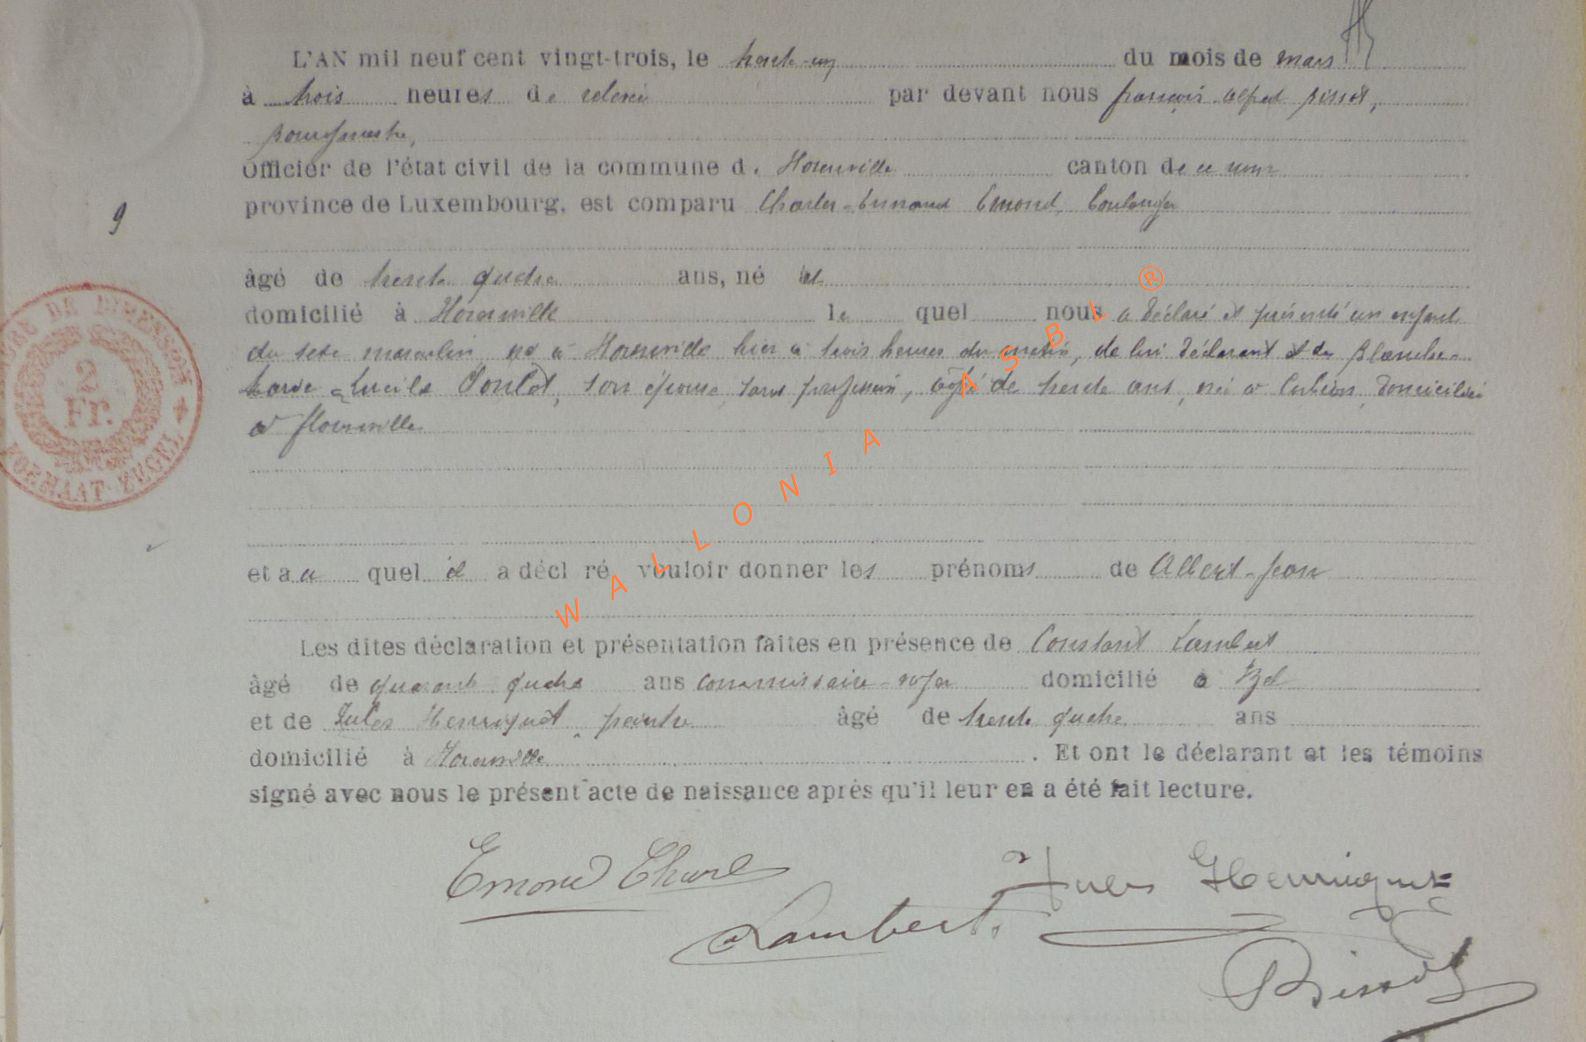 L'AN mil neuf cent vingt-trois, le trente-un du mois de mars
à trois heures de relevée par devant nous françois Alfred Pissot,
Bourgmestre,
Officier de l'état civil de la commune de Florenville canton de ce nom
province de Luxembourg, est comparu Charles-Ernand Emond, Boulanger
âgé de trente quatre ans, né et
domicilié à Florenville le quel nous a déclaré et présenté un enfant
du sexe masculin né à Florenville hier à trois heures du matin, de lui déclarant et de Blanche-
Lucile son épouse, sans profession, âgée de trente ans, née à domiciliée
à Florenville
et auquel il a déclaré vouloir donner les prénoms de Albert-Jean
Les dites déclaration et présentation faites en présence de Constant Lambert
âgé de quarante quatre ans commissaire-voyer domicilié à Izel
et de Jules Henriquet, peintre âgé de trente quatre ans
domicilié à Florenville. Et ont le déclarant et les témoins
signé avec nous le présent acte de naissance après qu'il leur en a été fait lecture.
Emond Charles
Jules Henriquet
Lambert
9
2
Fr.
FORMAAT ZEGEL
WALLONIA ASBL ®